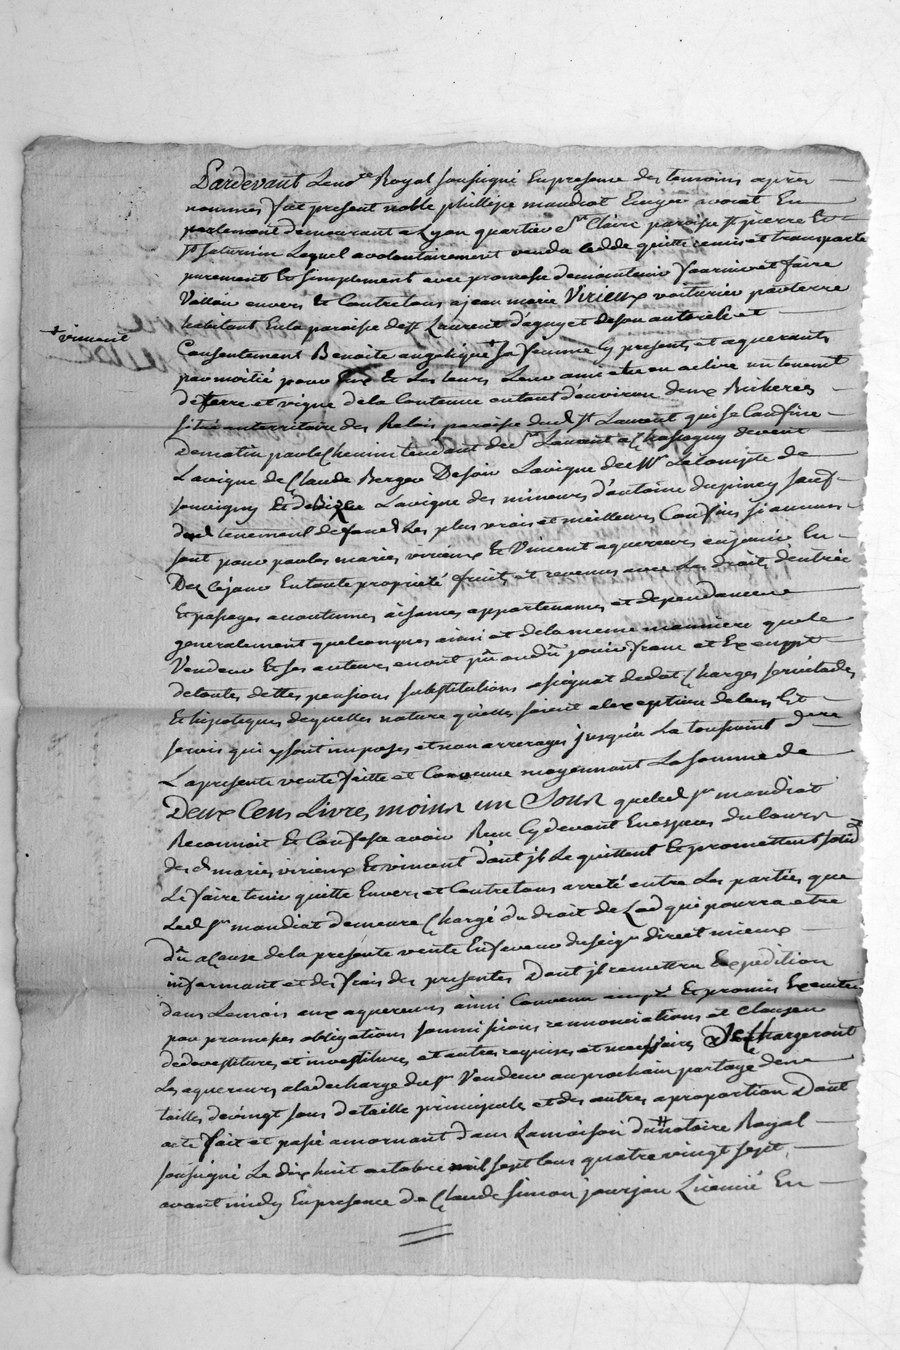 Pardevant Le no.re Royal soussigné En presence des temoins après
nommes fut present noble philippe mandiat Ecuyer avocat En
parlement demeurant a Lyon quartier S.te Claire paroisse st pierre Et
st saturnin Lequel a volontairement vendu cedde quitte remis et transporté
purement Et simplement avec promesse de maintenir fournir et faire
Valloir envers Et Contre tous a jean marie Virieux voiturier par terre
habitant En la paroisse de st Laurent d'agny et de son autorité et
+ vincent
Consentement Benoite angelique + sa femme Cy presents et aquereurs
par moitié pour Eux Et Les leurs Leur ami elu ou a elire un tenement
de terre et vigne de la Contenue autant d'environ deux Bicherées
situé au territoire des Relais paroisse dud st Laurent qui se Confine
De matin par le Chemin tendant de st Laurent a Chassagny de vent
La vigne de Claude Berger De soir La vigne de Mr Lecompte de
souvigny Et de Bize La vigne des mineurs d'antoine dupiney sauf
dud tenement de fond Les plus vrais et meilleurs Confins si aucuns
sont pour par les maries virieux Et Vincent aquereurs en jouir En
Des Ce jour En toute propriété fruits et revenus avec Les droits d'entrée
Et passages accoutumes aisances appartenances et dependances
generalement quelconques ainsi et de la meme manniere que le
Vendeur Et ses auteurs en ont pû ou dû jouir franc et Exempt
de toutes dettes pensions substitutions assignat de dot Charges servitudes
Et hipoteques de quelles nature qu'elles soient a l'exeption de lens Et
servis qui y sont imposes et non arrerages jusqu'a La toussaint
La presente vente faitte et Convenue moyennant La somme de
Deux Cens Livres moins un Sous que led sr mandiat
Reconnoit Et Confesse avoir Reçu Cy devant En especes du Cours
des d maries virieux Et vincent d'ont il Le quittent Et promettent
Le faire tenir quitte Envers et Contre tous arreté entre Les parties que
Led sr mandiat demeure Chargé du droit de Lod qui pourra etre
dû a Cause de la presente vente En faveur du seigr direct mieux
informant et des frais des presentes Dont il remettra Expedition
dans Le mois aux aquereurs ainsi Convenu Et promis Executer
par promesses obligations soumissions rennonciations et Clauses
de devestitures et investitures et autres requises et necessaires Dechargeront
Les aquereurs a la decharge du sr Vendeur au prochain partage de
tailles de vingt sous de taille principale et des autres a proportion Dont
acte fait et passé a mornant dans La maison du notaire Royal
soussigné Le dix huit octobre mil sept Cens quatre vingt sept
avant midy En presence de Claude simon jourjon Licencié En